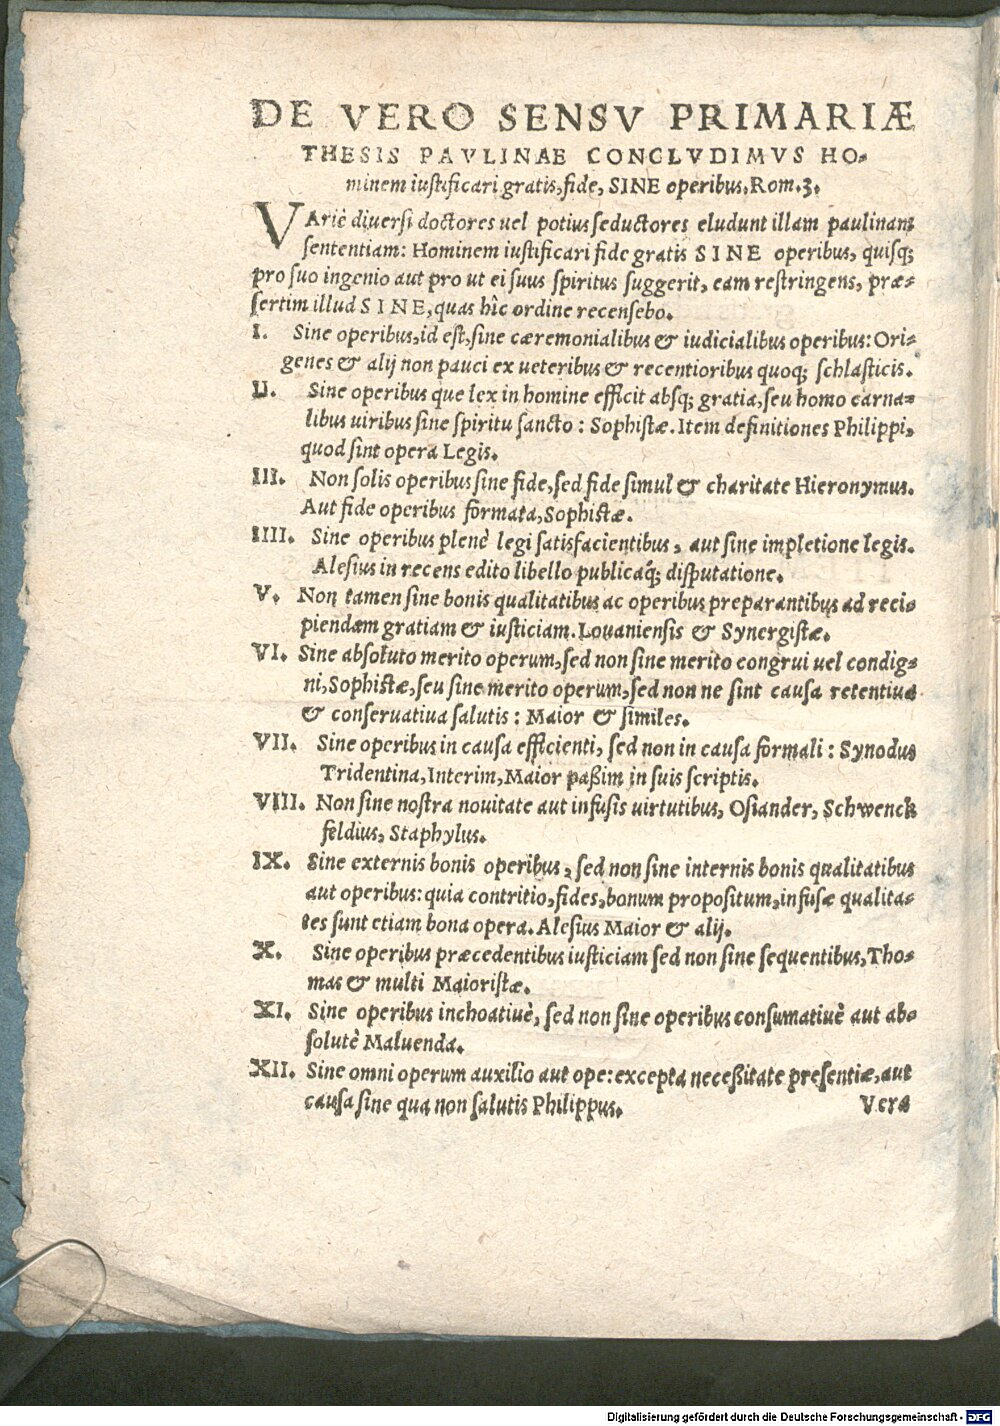 DE VERO SENSV PRIMARIÆ
THESIS PAVLINAE CONCLVDIMVS HO-
minem iuſtificari gratis, fide, SINE operibus. Rom. 3.
VArie diuerſi doctores uel potius ſeductores eludunt illam paulinam
ſententiam: Hominem iuſtificari fide gratis SINE operibus, quisq;
pro ſuo ingenio aut pro ut ei ſuus ſpiritus ſuggerit, eam reſtringens, præ-
ſertim illud SINE, quas hîc ordine recenſebo.
I. Sine operibus, id eſt, ſine cæremonialibus & iudicialibus operibus: Ori-
genes & alij non pauci ex ueteribus & recentioribus quoq; ſchlaſticis.
II. Sine operibus que lex in homine efficit absq; gratia, ſeu homo carna-
libus uiribus ſine ſpiritu ſancto: Sophiſtæ. Item definitiones Philippi,
quod ſint opera Legis.
III. Non ſolis operibus ſine fide, ſed fide ſimul & charitate Hieronymus.
Aut fide operibus formata, Sophiſtæ.
IIII. Sine operibus plenè legi ſatisfacientibus, aut ſine impletione legis.
Aleſius in recens edito libello publicaq́; diſputatione.
V. Non tamen ſine bonis qualitatibus ac operibus preparantibus ad reci-
piendam gratiam & iuſticiam. Louanienſis & Synergiſtæ.
VI. Sine abſoluto merito operum, ſed non ſine merito congrui uel condig-
ni, Sophiſtæ, ſeu ſine merito operum, ſed non ne ſint cauſa retentiua
& conſeruatiua ſalutis: Maior & ſimiles.
VII. Sine operibus in cauſa efficienti, ſed non in cauſa formali: Synodus
Tridentina, Interim, Maior paßim in ſuis ſcriptis.
VIII. Non ſine noſtra nouitate aut infuſis uirtutibus, Oſiander, Schwenck
feldius, Staphylus.
IX. Sine externis bonis operibus, ſed non ſine internis bonis qualitatibus
aut operibus: quia contritio, fides, bonum propoſitum, infuſæ qualita-
tes ſunt etiam bona opera. Aleſius Maior & alij.
X. Sine operibus præcedentibus iuſticiam ſed non ſine ſequentibus, Tho-
mas & multi Maioriſtæ.
XI. Sine operibus inchoatiuè, ſed non ſine operibus conſumatiuè aut ab-
ſolutè Maluenda.
XII. Sine omni operum auxilio aut ope: excepta neceßitate preſentiæ, aut
cauſa ſine qua non ſalutis Philippus.
Vera
Digitalisierung gefördert durch die Deutsche Forschungsgemeinschaft - DFG